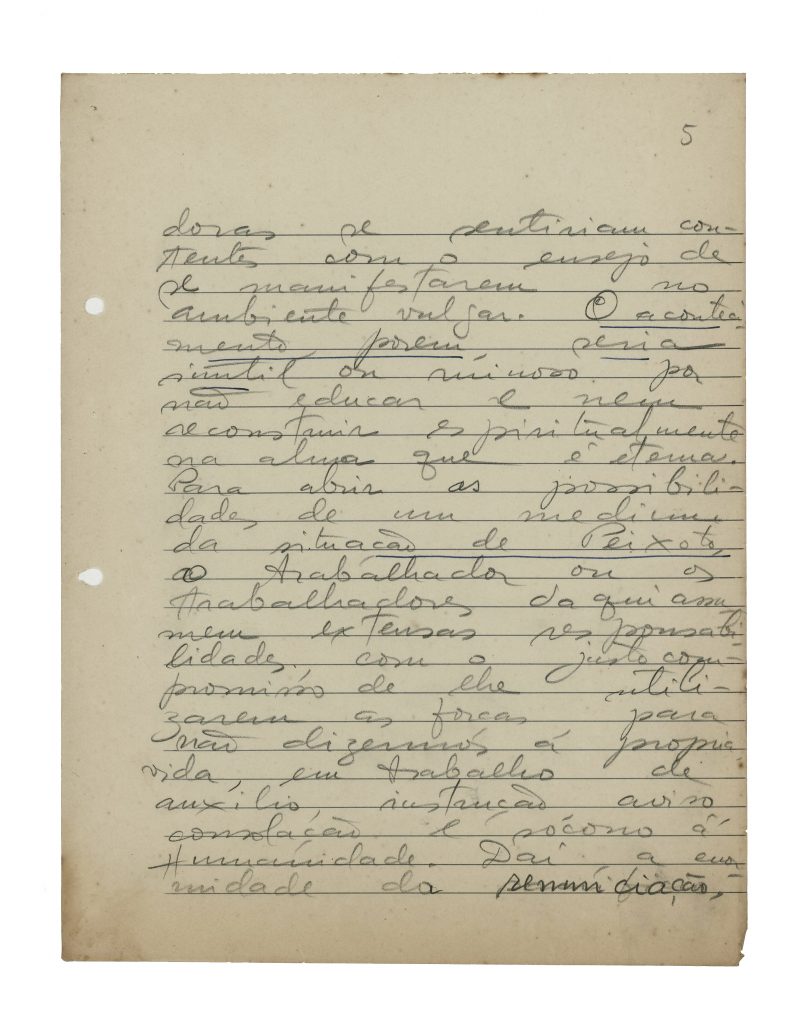 5
doras se sentiriam con-
tentes com o ensejo de
se manifestarem no
ambiente vulgar. O acontec̄i
mento porem seria
inutil ou ruinoso por
não educar e nem
reconstruir espiritualmente
na alma que é eterna.
Para abrir as possibili-
dades de um medium
da situação de Peixoto,
ao trabalhador ou os
trabalhadores daqui assu
mem extensas responsabi-
lidades, com o justo com-
promisso de lhe utili-
zarem as forças para
não dizermos á propria
vida, em trabalho de
auxilio, instrução aviso
consolação e sócorro á
Humanidade. Daí a enor-
midade da renunciação,